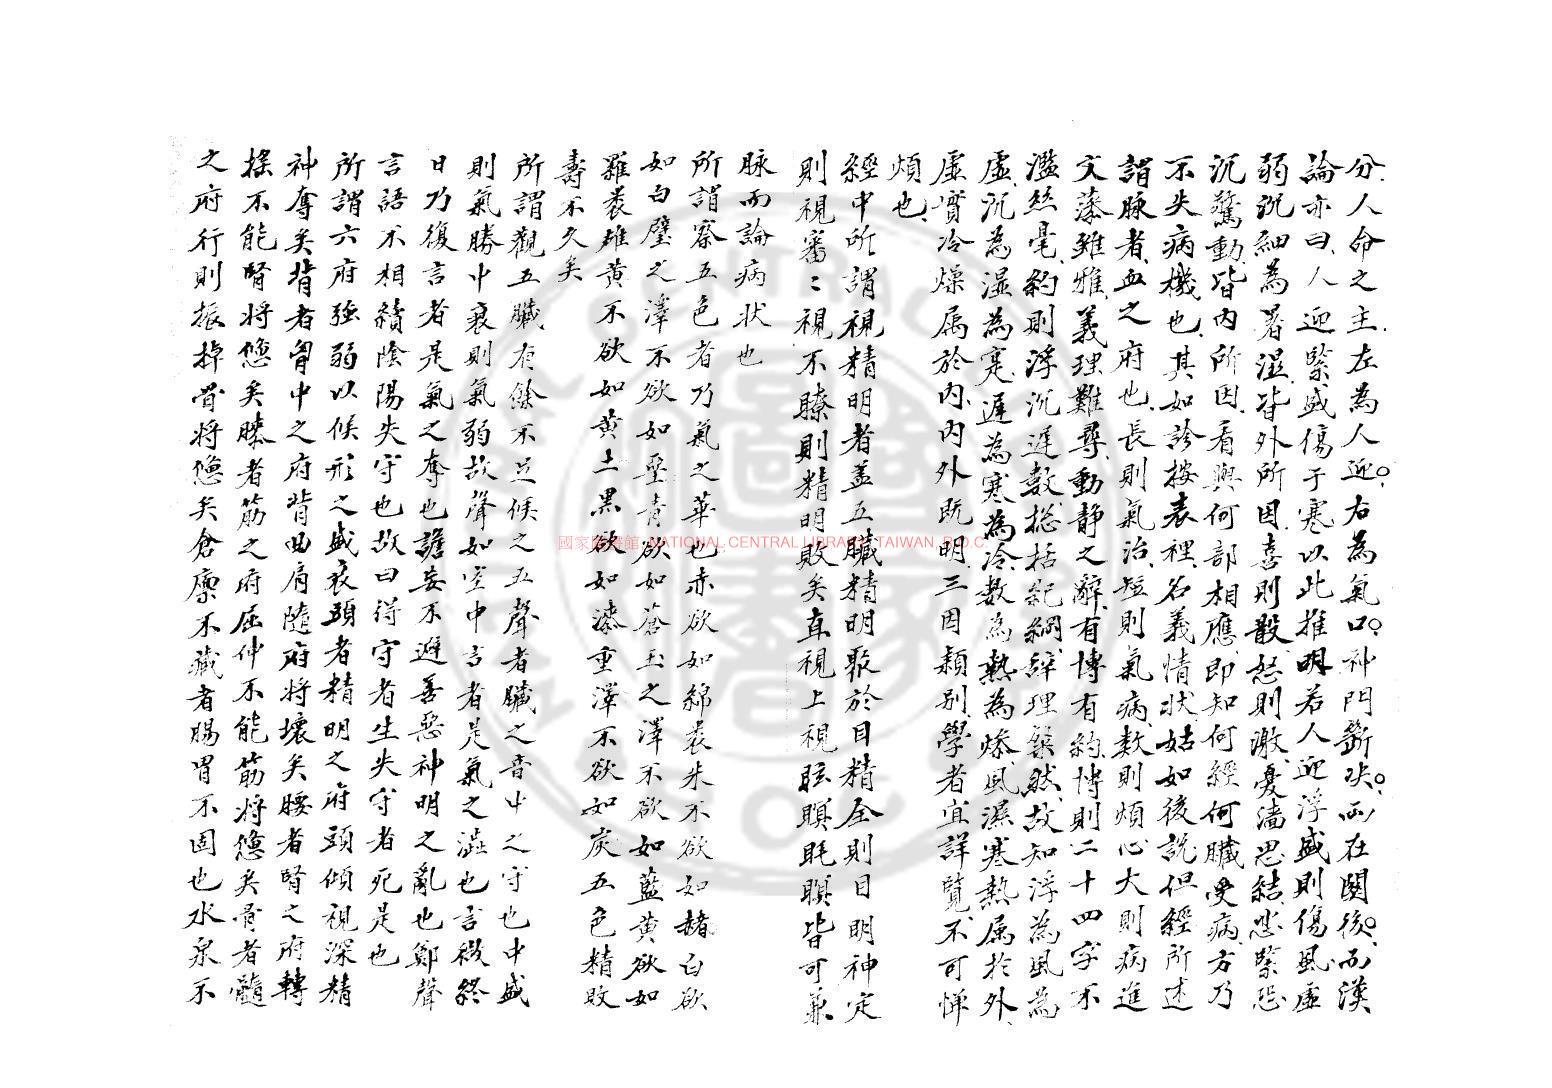 分人命之主左為人迎右為氣口神門斷决而在關後而漢
論亦曰人迎緊盛傷于寒以此推明若人迎浮盛則傷風虛
弱沉細為暑濕皆外所因喜則散怒則激憂濇思結悲緊恐
沉驚動皆内所因看與何部相應即知何經何臟受病方乃
不失病機也其如診按表裡名義情狀姑如後說但經所述
謂脉者血之府也長則氣治短則氣病数則煩心大則病進
文藻雖雅義理難尋動静之辭有博有約博則二十四字不
濫絲毫約則浮沉遲数捴括紀綱辞理粲然故知浮為風為
虛沉為濕為寔遲為寒為冷数為熱為燥風濕寒熱属於外
虛實冷燥属於内内外既明三因頴别學者宜詳覽不可憚
煩也
經中所謂視精明者盖五臟精明聚於目精全則目明神定
則視審〻視不瞭則精明敗矣直視上視眩瞑眊瞑皆可兼
脉而論病状也
所謂察五色者乃氣之華也赤欲如綿裹朱不欲如赭白欲
如白璧之澤不欲如堊青欲如蒼玉之澤不欲如藍黄欲如
羅裹雄黄不欲如黄土黒欲如漆重澤不欲如炭五色精敗
壽不久矣
所謂觀五臟有餘不足候之五聲者臟之音中之守也中盛
則氣勝中衰則氣弱故聲如室中言者是氣之澁也言微終
日乃復言者是氣之奪也譫妄不避善惡神明之亂也鄭聲
言語不相續陰陽失守也故曰得守者生失守者死是也
所謂六府強弱以候形之盛衰頭者精明之府頭傾視深精
神奪矣背者胷中之府背曲肩隨府將壞矣腰者腎之府轉
揺不能腎將憊矣膝者筋之府屈伸不能筋將憊矣骨者髓
之府行則振掉骨將憊矣倉廪不藏者腸胃不固也水泉不
國家圖書館 NATIONAL CENTRAL LIBRARY TAIWAN, R.O.C